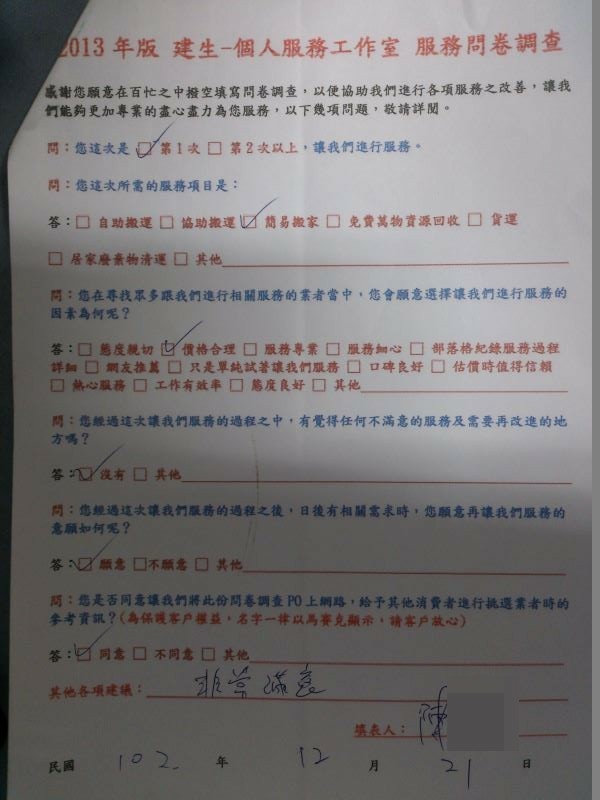 2013 年版 建生-個人服務工作室 服務問卷調查
感謝您願意在百忙之中撥空填寫問卷調查，以便協助我們進行各項服務之改善，讓我
們能夠更加專業的盡心盡力為您服務，以下幾項問題，敬請詳閱。
問：您這次是 ☑ 第1次 □ 第2次以上，讓我們進行服務。
問：您這次所需的服務項目是：
答：□ 自助搬運 □ 協助搬運 ☑ 簡易搬家 □ 免費萬物資源回收 □ 貨運
□ 居家廢棄物清運 □ 其他
問：您在尋找眾多跟我們進行相關服務的業者當中，您會願意選擇讓我們進行服務的
因素為何呢？
答：□ 態度親切 ☑ 價格合理 □ 服務專業 □ 服務細心 □ 部落格紀錄服務過程
詳細 □ 網友推薦 □ 只是單純試著讓我們服務 □ 口碑良好 □ 估價時值得信賴
□ 熱心服務 □ 工作有效率 □ 態度良好 □ 其他
問：您經過這次讓我們服務的過程之中，有覺得任何不滿意的服務及需要再改進的地
方嗎？
答：☑ 沒有 □ 其他
問：您經過這次讓我們服務的過程之後，日後有相關需求時，您願意再讓我們服務的
意願如何呢？
答：☑ 願意 □不願意 □ 其他
問：您是否同意讓我們將此份問卷調查PO上網路，給予其他消費者進行挑選業者時的
參考資訊？(為保護客戶權益，名字一律以馬賽克顯示，請客戶放心)
答：☑ 同意 □ 不同意 □ 其他
其他各項建議：非常滿意
填表人：陳
民國 102. 年 12 月 21 日